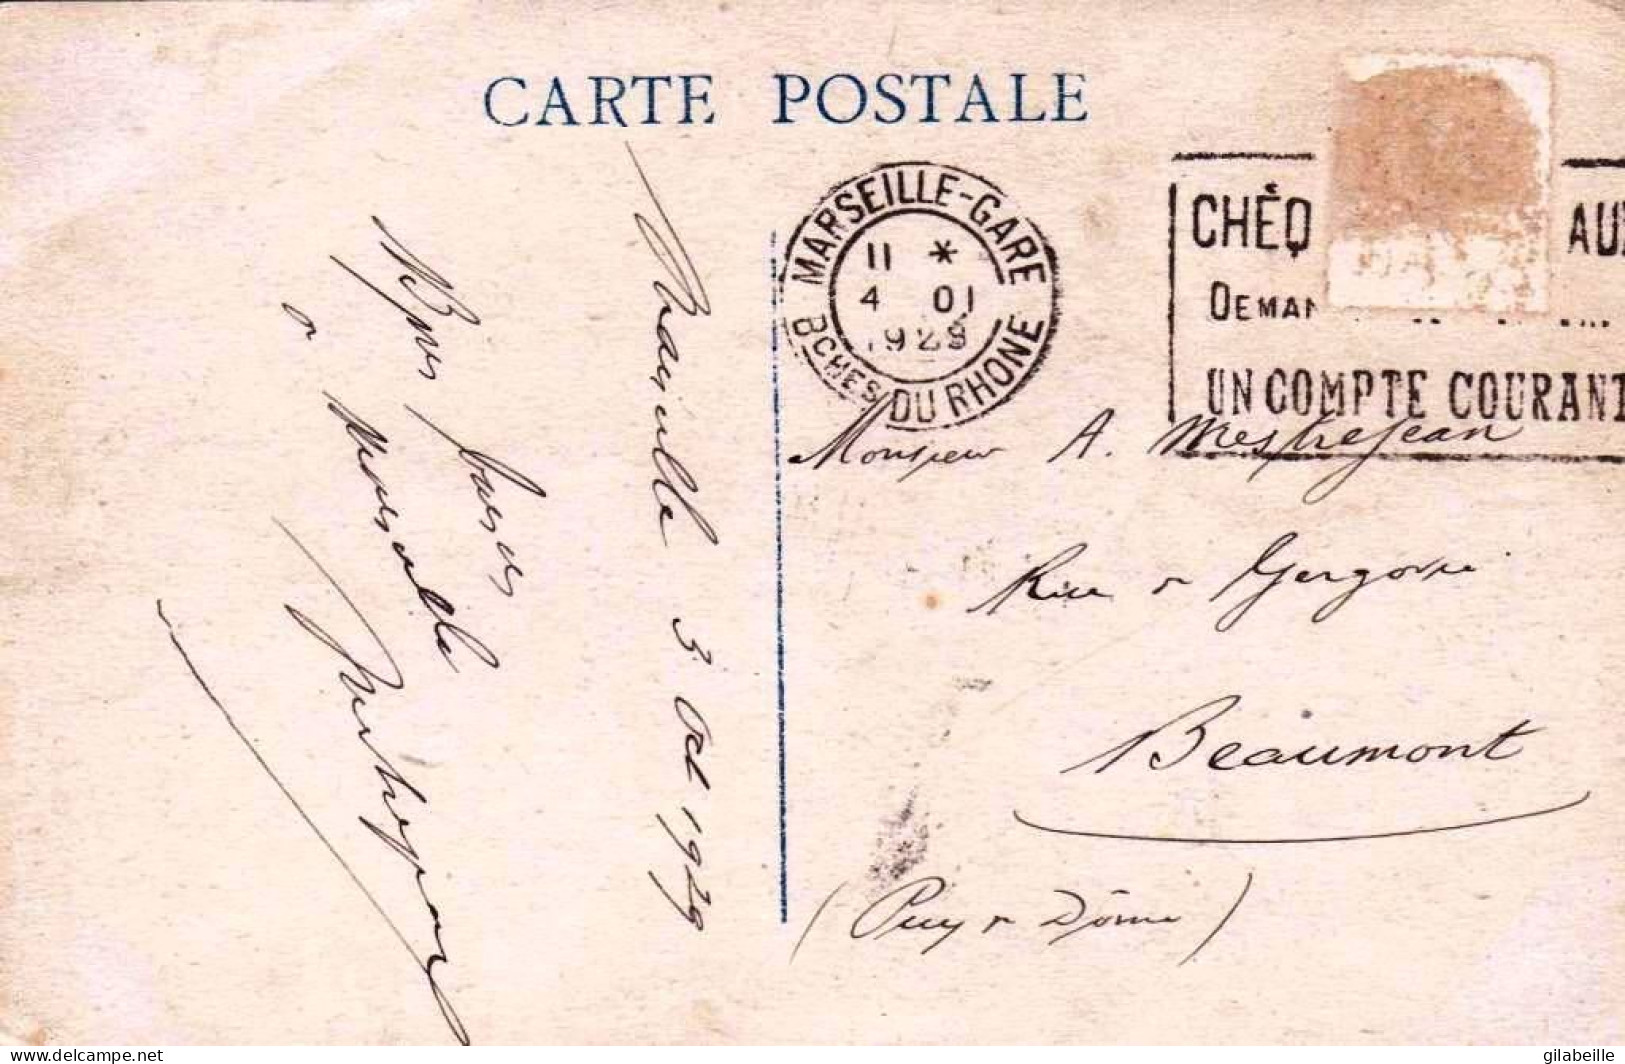 CARTE POSTALE
MARSEILLE-GARE
11 *
4 OI
1929
BCHES DU RHONE
CHÈQ AUX
DEMAN
UN COMPTE COURANT
Marseille 3 Oct 1929
Bons baisers
de Marseille
Monsieur A. Mestrejean
Rue de Gergovie
Beaumont
(Puy de Dôme)
www.delcampe.net
gilabeille